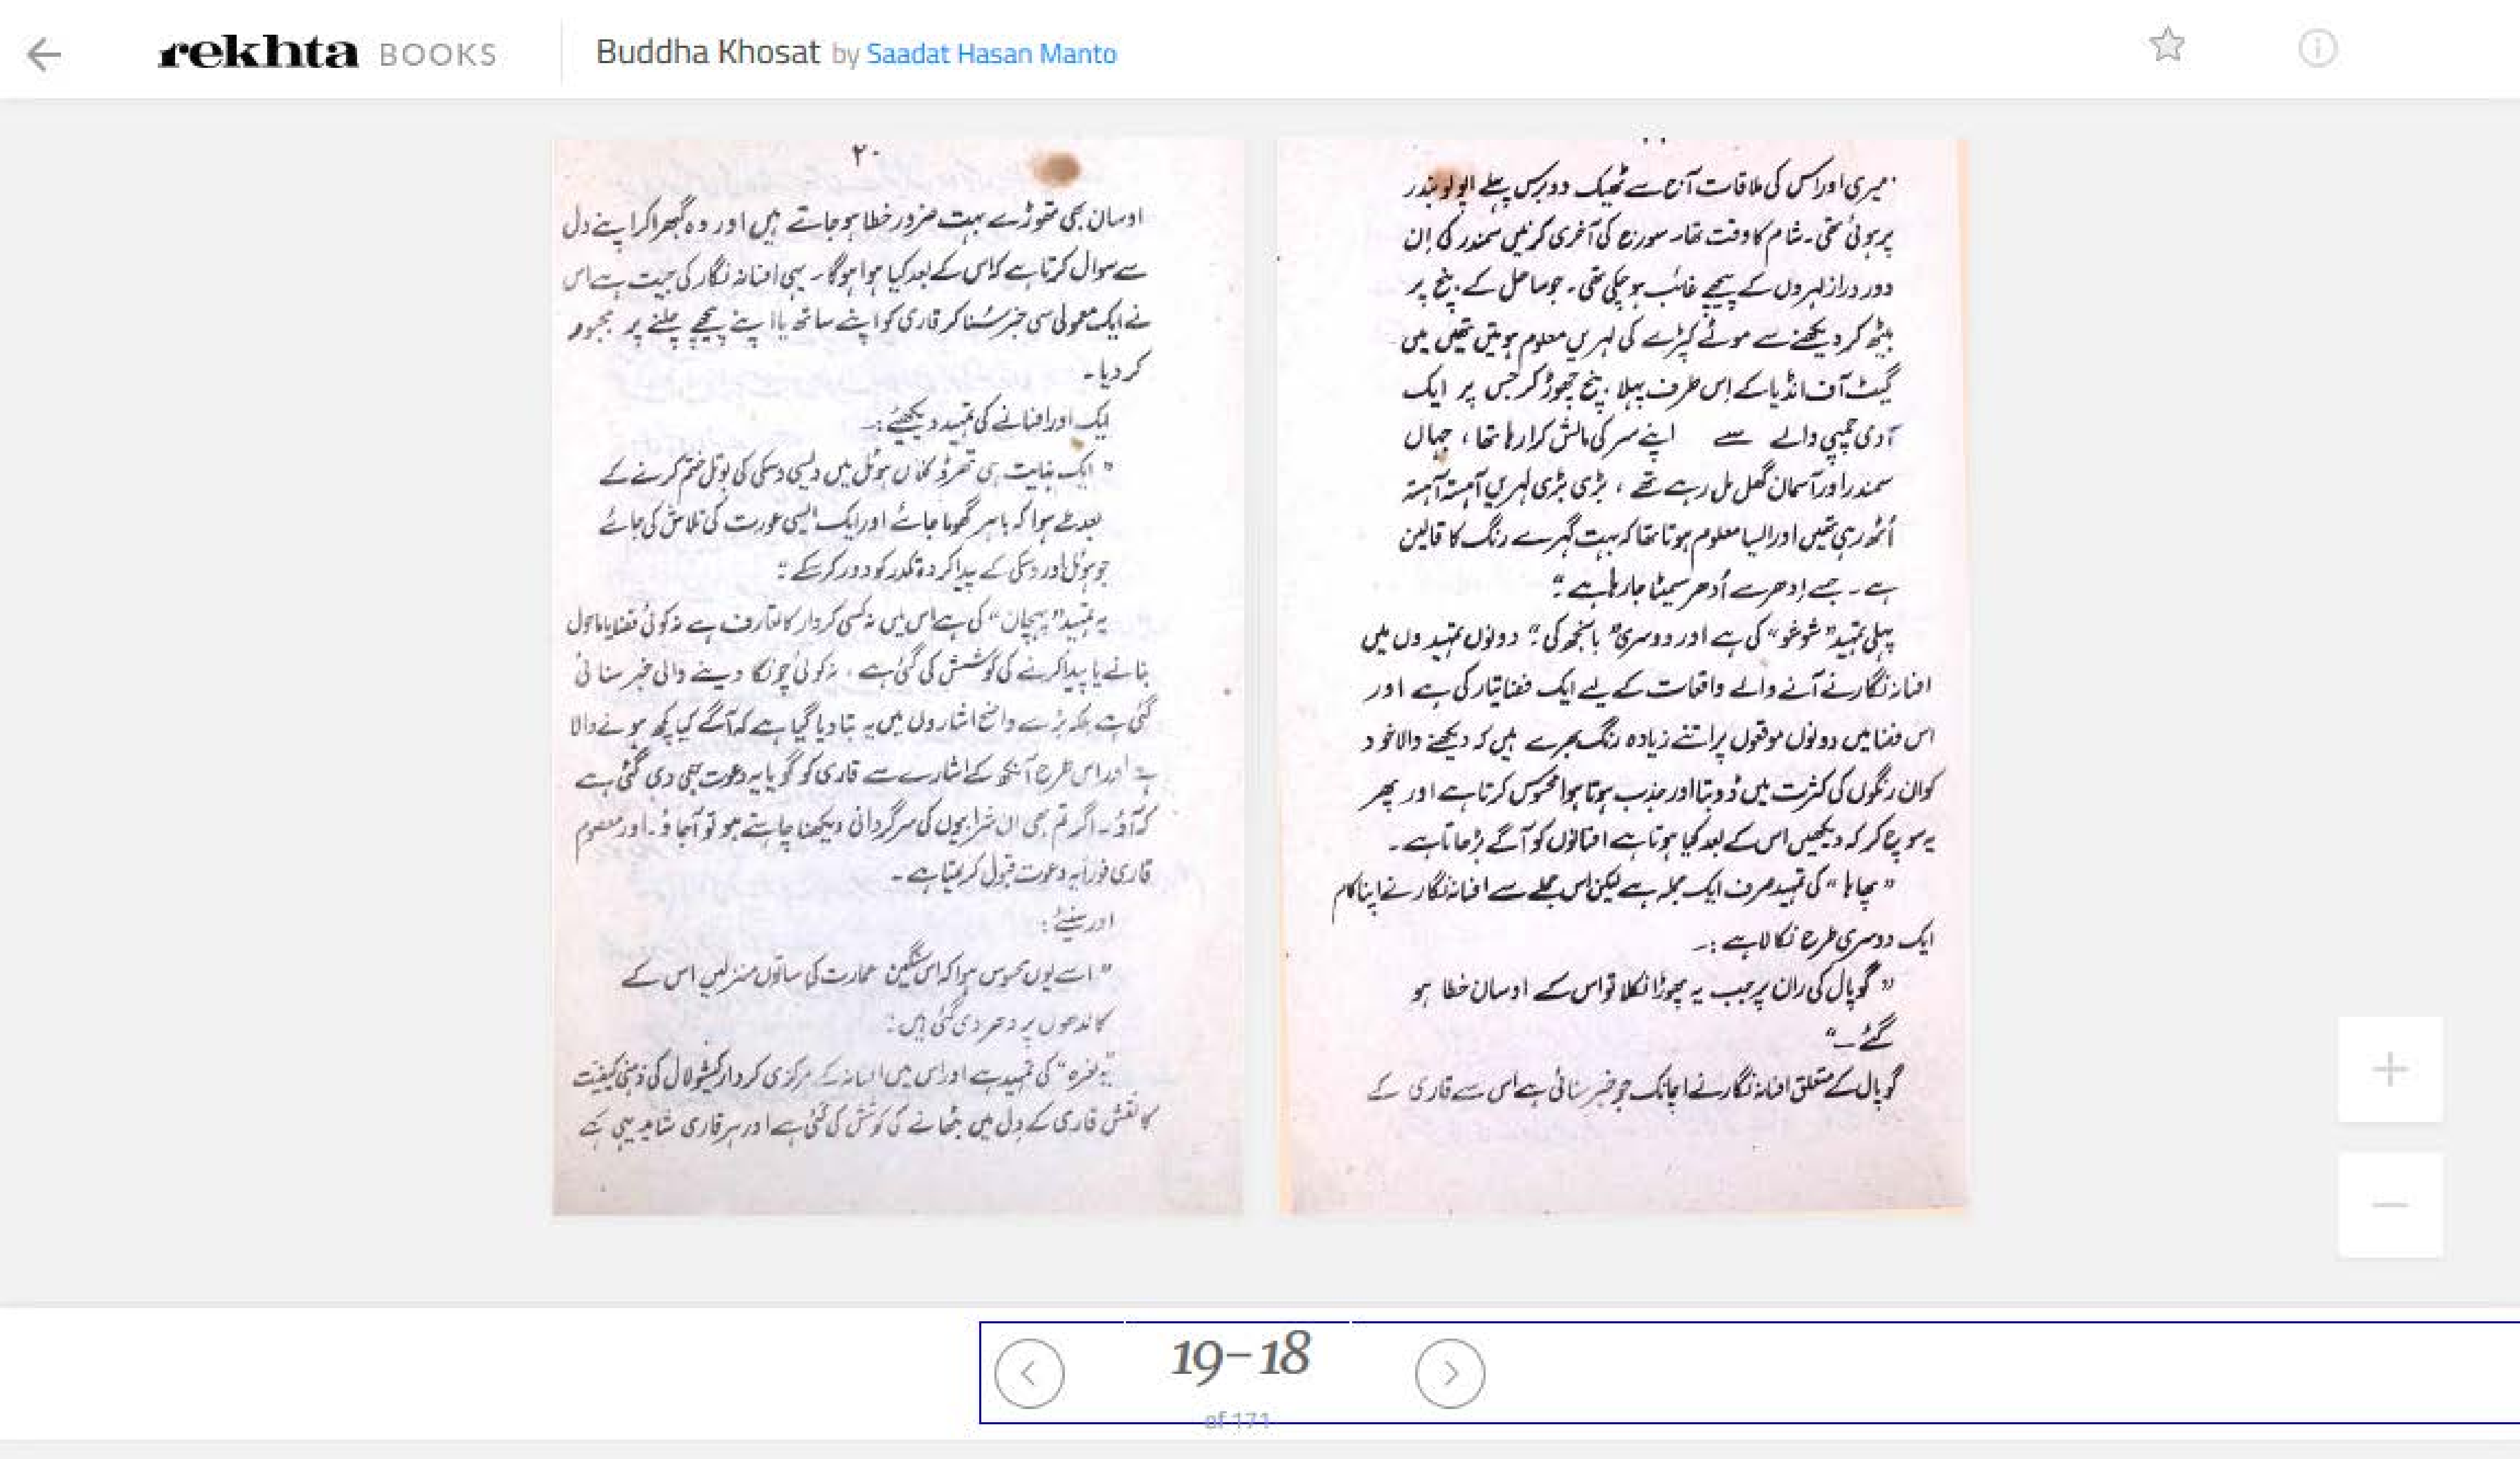 rekhta BOOKS
Buddha Khosat by Saadat Hasan Manto
میری اور اس کی ملاقات آج سے ٹھیک دو برس پہلے اپولو بندر
پر ہوئی تھی۔ شام کا وقت تھا۔ سورج کی آخری کرنیں سمندر کی اِن
دور دراز لہروں کے پیچھے غائب ہو چکی تھی۔ جو ساحل کے بنچ پر
بیٹھ کر دیکھنے سے موٹے کپڑے کی لہریں معلوم ہوتیں تھیں میں
گیٹ آف انڈیا کے اِس طرف پہلا بنچ چھوڑ کر جس پر ایک
آدمی چمپی والے سے اپنے سر کی مالش کرا رہا تھا، جہاں
سمندر اور آسمان گھل مل رہے تھے، بڑی بڑی لہریں آہستہ آہستہ
اُٹھ رہی تھیں اور ایسا معلوم ہوتا تھا کہ بہت گہرے رنگ کا قالین
ہے۔ جسے اِدھر سے اُدھر سمیٹا جا رہا ہے“
پہلی تمہید ”شوشو“ کی ہے اور دوسری ”بانجھ کی“ دونوں تمہیدوں میں
افسانہ نگار نے آنے والے واقعات کے لیے ایک فضا تیار کی ہے اور
اس فضا میں دونوں موقعوں پر اتنے زیادہ رنگ بھرے ہیں کہ دیکھنے والا خود
کو ان رنگوں کی کثرت میں ڈوبتا اور جذب ہوتا ہوا محسوس کرتا ہے اور پھر
یہ سوچ کر کہ دیکھیں اس کے بعد کیا ہوتا ہے افسانوں کو آگے بڑھاتا ہے۔
”پھاہا“ کی تمہید صرف ایک جملہ ہے لیکن اس جملے سے افسانہ نگار نے اپنا کام
ایک دوسری طرح نکالا ہے :۔
”گوپال کی ران پر جب یہ پھوڑا نکلا تو اس کے اوسان خطا ہو
گئے۔“
گوپال کے متعلق افسانہ نگار نے اچانک جو خبر سنائی ہے اس سے قاری کے
۲۰
اوسان بھی تھوڑے بہت ضرور خطا ہو جاتے ہیں اور وہ گھبرا کر اپنے دل
سے سوال کرتا ہے کہ اس کے بعد کیا ہوا ہوگا۔ یہی افسانہ نگار کی جیت ہے اس
نے ایک معمولی سی خبر سُنا کر قاری کو اپنے ساتھ یا اپنے پیچھے چلنے پر مجبور
کر دیا۔
ایک اور افسانے کی تمہید دیکھئے :۔
”ایک نہایت ہی تھرڈ کلاس ہوٹل میں دیسی وسکی کی بوتل ختم کرنے کے
بعد طے ہوا کہ باہر گھوما جائے اور ایک ایسی عورت کی تلاش کی جائے
جو ہوٹل اور وسکی کے پیدا کردہ تکدر کو دور کر سکے“
یہ تمہید ”پہچان“ کی ہے اس میں نہ کسی کردار کا تعارف ہے نہ کوئی فضا یا ماحول
بنانے یا پیدا کرنے کی کوشش کی گئی ہے، نہ کوئی چونکا دینے والی خبر سنائی
گئی ہے بلکہ بڑے واضح اشاروں میں یہ بتا دیا گیا ہے کہ آگے کیا کچھ ہونے والا
ہے اور اس طرح آنکھ کے اشارے سے قاری کو گویا یہ دعوت بھی دی گئی ہے
کہ آؤ۔ اگر تم بھی ان شرابیوں کی سرگردانی دیکھنا چاہتے ہو تو آجاؤ۔ اور معصوم
قاری فوراً یہ دعوت قبول کر لیتا ہے۔
اور سنیئے :
”اسے یوں محسوس ہوا کہ اس سنگین عمارت کی ساتوں منزلیں اس کے
کاندھوں پر دھر دی گئی ہیں“
یہ ”نعرہ“ کی تمہید ہے اور اس میں افسانہ کے مرکزی کردار کیشو لال کی ذہنی کیفیت
کا نقش قاری کے دل میں بٹھانے کی کوشش کی گئی ہے اور ہر قاری شاید یہی
19-18
of 171